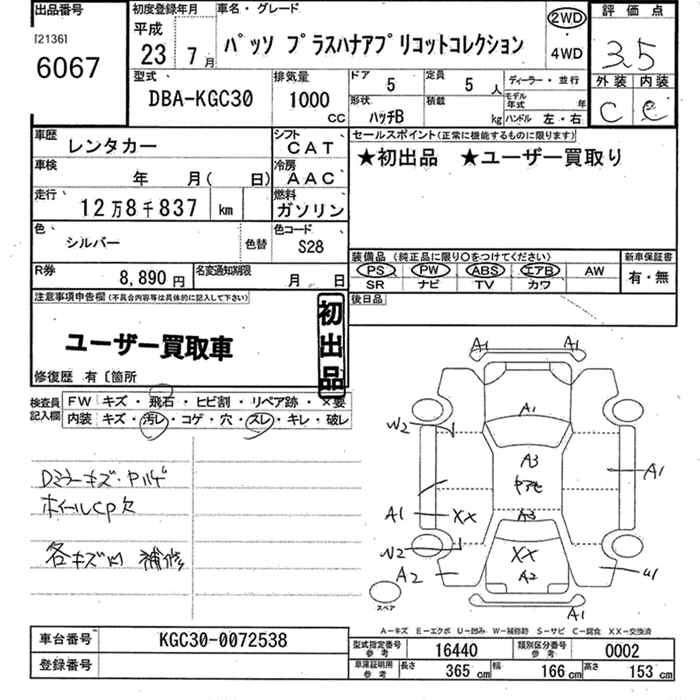 出品番号 初度登録年月 車名・グレード 評価点
[2136] 平成 2WD
6067 23年 7月 パッソ プラスハナアプリコットコレクション ・ 3.5
4WD
型式 排気量 ドア 5 定員 5人 ディーラー・並行 外装 内装
DBA-KGC30 1000 CC 形状 ハッチB 積載 kg モデル年式 年 C C
ハンドル 左・右
車歴 レンタカー シフト CAT セールスポイント(正常に機能するものに限ります)
★初出品 ★ユーザー買取り
車検 年 月( 日) 冷房 AAC
走行 12万8千837 km 燃料 ガソリン
色 シルバー 色替 色コード S28
装備品 (純正品に限り○をつけてください) 新車保証書
R券 8,890円 名変通知期限 月 日 PS PW ABS エアB AW 有・無
SR ナビ TV カワ
注意事項申告欄(不具合内容等は具体的に記入して下さい) 後日品
初出品
ユーザー買取車
修復歴 有〔箇所
検査員記入欄 FW キズ・飛石・ヒビ割・リペア跡・×要
内装 キズ・汚レ・コゲ・穴・スレ・キレ・破レ
A1 A1
A1
W2
A3
ヤアセ
A1
Dミラーキズ・ヤハゲ
ホイールCP欠
A1 XX A3
各キズ凹 補修
W2 XX
A2 A2 U1
スペア A1
A-キズ E-エクボ U-凹み W-補修跡 S-サビ C-腐食 XX-交換済
車台番号 KGC30-0072538 型式指定番号 参考 16440 類別区分番号 参考 0002
登録番号 車庫証明用 参考 長さ 365 cm 幅 166 cm 高さ 153 cm